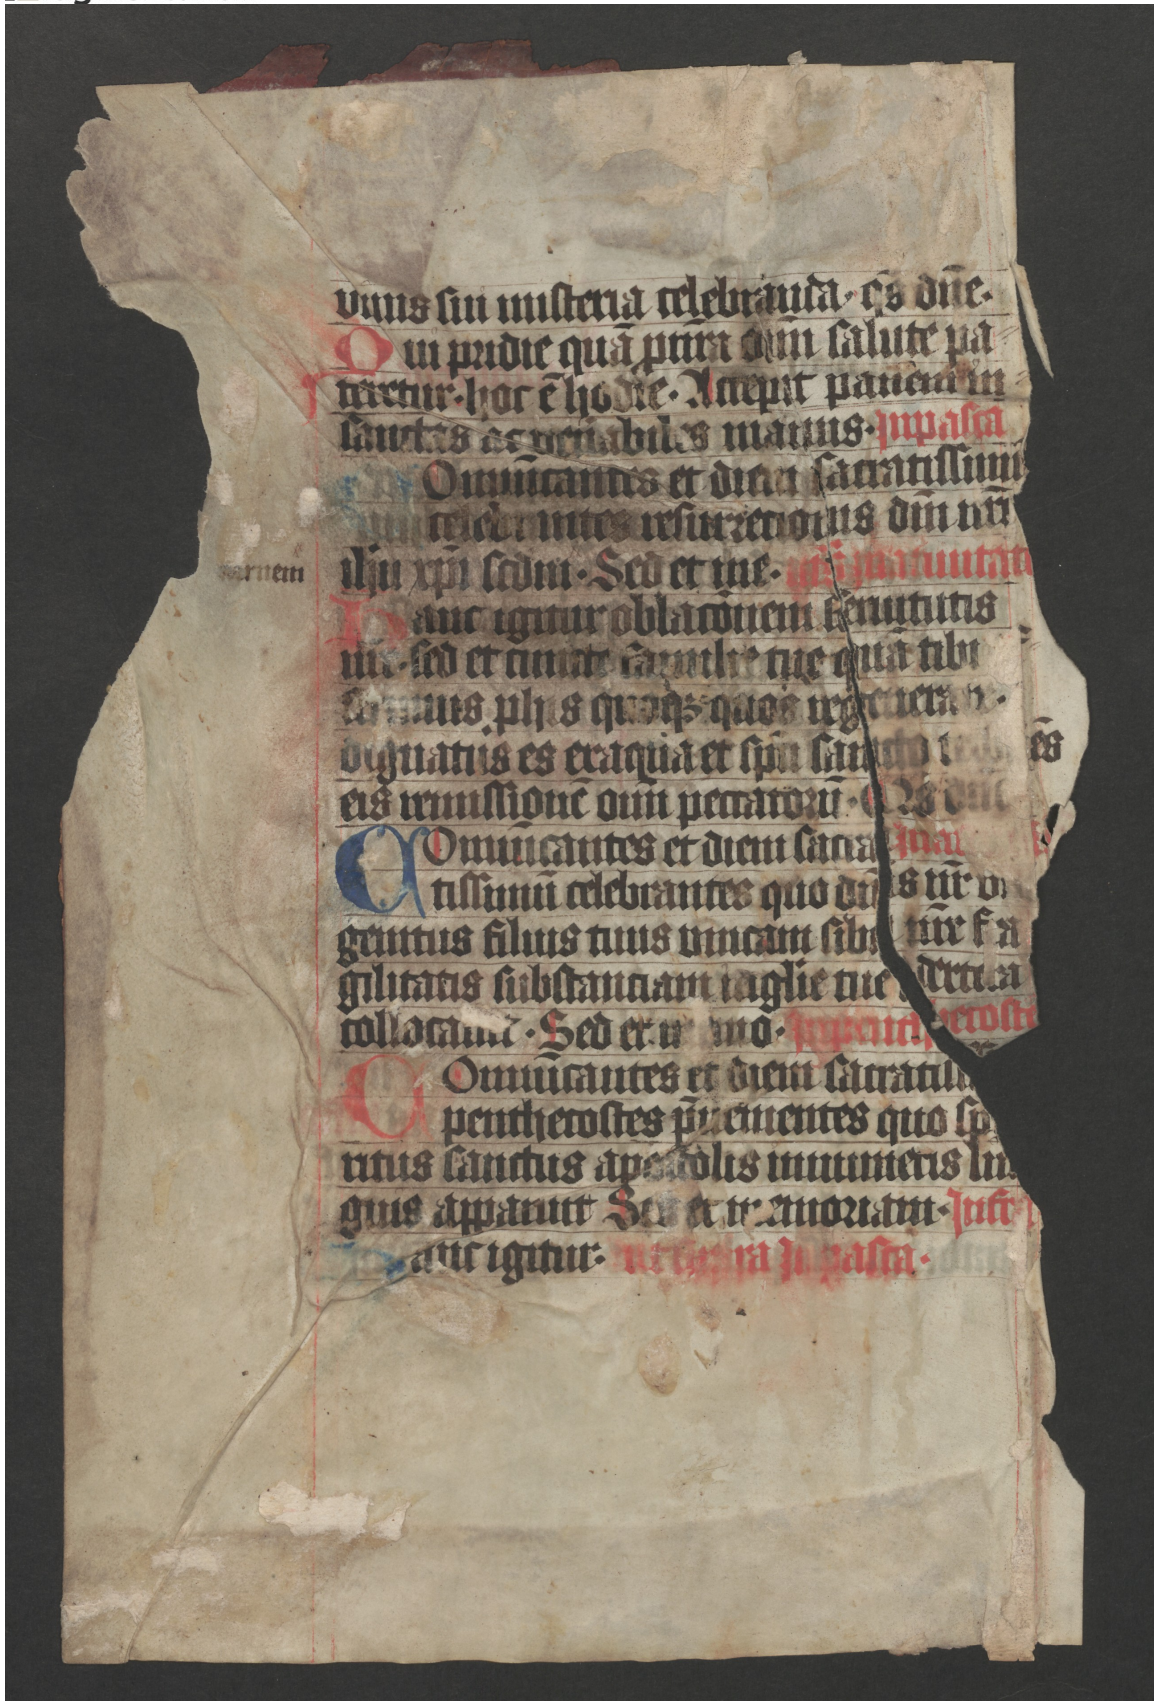 uiuus sui misteria celebranda · q̄s dn̄e ·
Qui pridie quā ꝓ nr̄a om̄i salute pa
teretur · hoc ē hodie · Accepit panem in
sanctas ac venerabiles manus · In pasca
Comunicantes et diem sacratissimū
celebrantes resurrectionis dn̄i nr̄i
carnem
ihu xp̄i scdm · Sed et me ·
Hanc igitur oblacōnem seruitutis
nr̄e · sed et cuncte familie tue quā tibi
offerimus p his quoqꝫ quos regenerare ·
dignatus es ex aqua et sp̄u sancto
eis remissionē om̄i peccatorū · Qs dn̄e
Comunicantes et diem sacra
tissimū celebrantes quo dn̄s nr̄ vni
genitus filius tuus vnitam sibi nr̄e fra
gilitatis substanciam in glīe tue dextera
collocauit · Sed et memo · In penthecoste
Comunicantes et diem sacratiss
penthecostes p̄uenientes quo spi
ritus sanctus apostolis innumeris lin
guis apparuit Sed et memoriam · Infra
Hanc igitur · ut supra In pasca ·